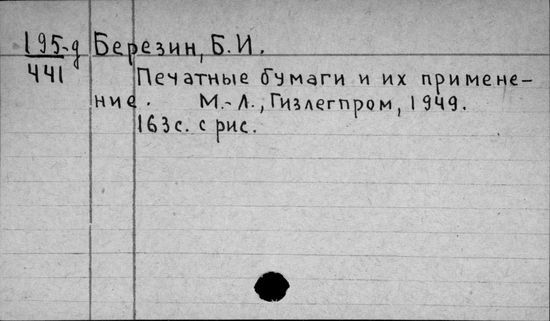 195-д Березин, Б.И.
441
Печатные бумаги и их примене-
ние. М.-Л., Гизлегпром, 1949.
163с. с рис.